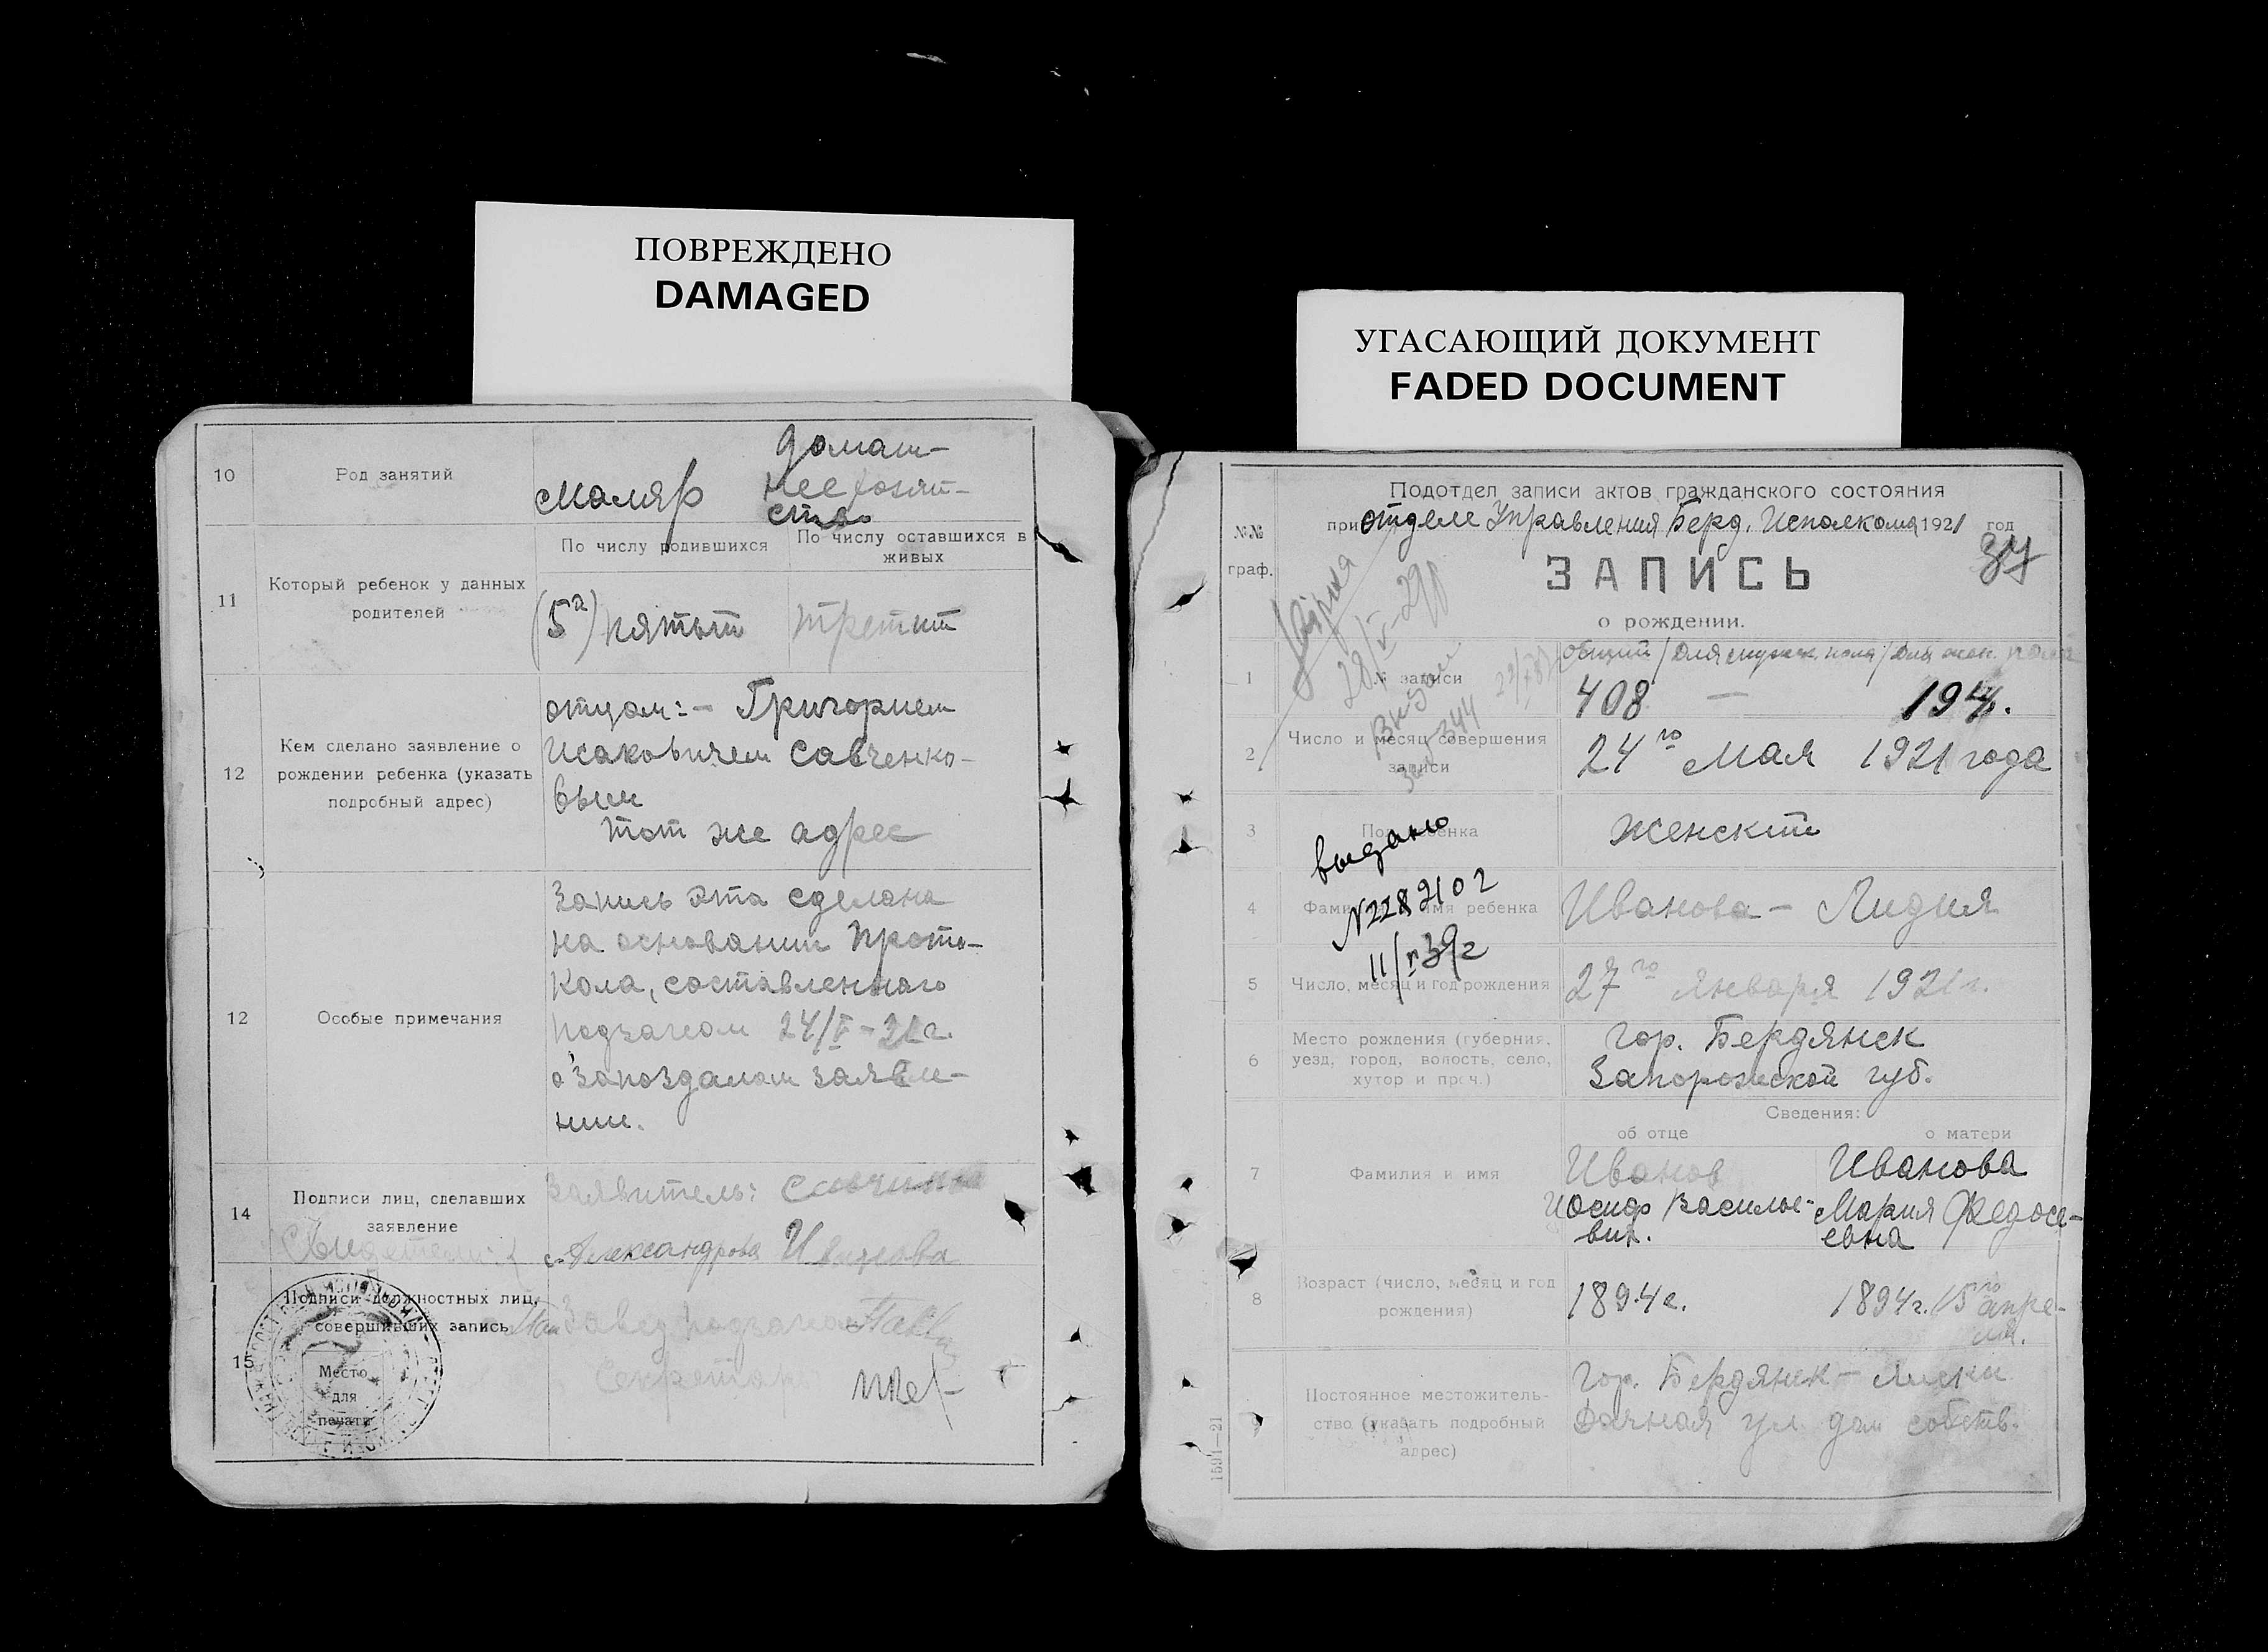 ПОВРЕЖДЕНО
DAMAGED
10
Род занятий
маляр
домаш-
нее хозяй-
ство
11
Который ребенок у данных
родителей
По числу родившихся
По числу оставшихся в
живых
(5й) пятый
третий
12
Кем сделано заявление о
рождении ребенка (указать
подробный адрес)
отцом:- Григорием
Исаковичем Савченко-
вым
тот же адрес
12
Особые примечания
Запись эта сделана
на основании прото-
кола, составленного
подзагсом 24/V-21г.
о запоздалом заявле-
нии.
14
Подписи лиц, сделавших
заявление
Свидетели:
Заявитель:
Александрова Иванова
15
Подписи должностных лиц,
совершивших запись
Место
для
печати
Завед подзагсом
Секретарь
УГАСАЮЩИЙ ДОКУМЕНТ
FADED DOCUMENT
Подотдел записи актов гражданского состояния
при отделе Управления Берд. Исполкома 1921 год
№№
граф.
ЗАПИСЬ
о рождении.
37
общий / Для мужск. пола / Для жен. пола
1
№ записи
408 — 194.
2
Число и месяц совершения
записи
24го Мая 1921 года
3
Пол ребенка
Женский
выдано
N2282102
4
Фамилия и имя ребенка
Иванова - Лидия
5
Число, месяц и год рождения
27го Января 1921г.
6
Место рождения (губерния,
уезд, город, волость, село,
хутор и проч.)
гор. Бердянск
Запорожской губ.
Сведения:
об отце
о матери
7
Фамилия и имя
Иванов
Иосиф Василье-
вич.
Иванова
Мария Федосе-
евна
8
Возраст (число, месяц и год
рождения)
1894г.
1894г. 15го апре-
ля.
9
Постоянное местожитель-
ство (указать подробный
адрес)
гор. Бердянск - Лиски
Дачная ул. дом собств.
1591—21